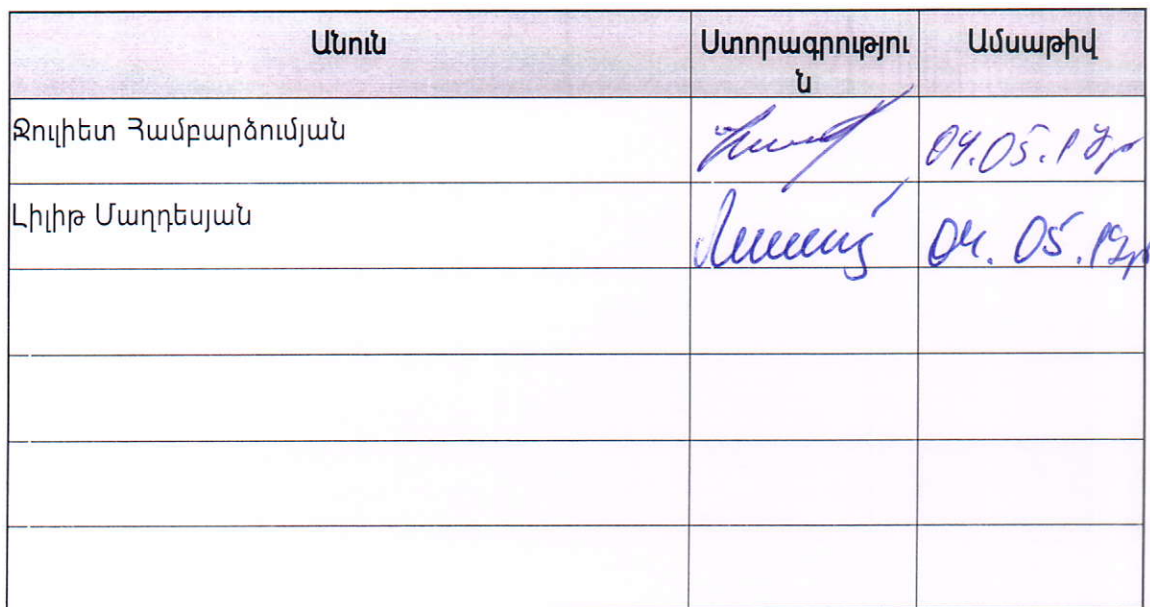 Անուն Ստորագրությու
ն Ամսաթիվ
Ջուլիետ Համբարձումյան 04.05.19թ
Լիլիթ Մաղդեսյան 04.05.19թ